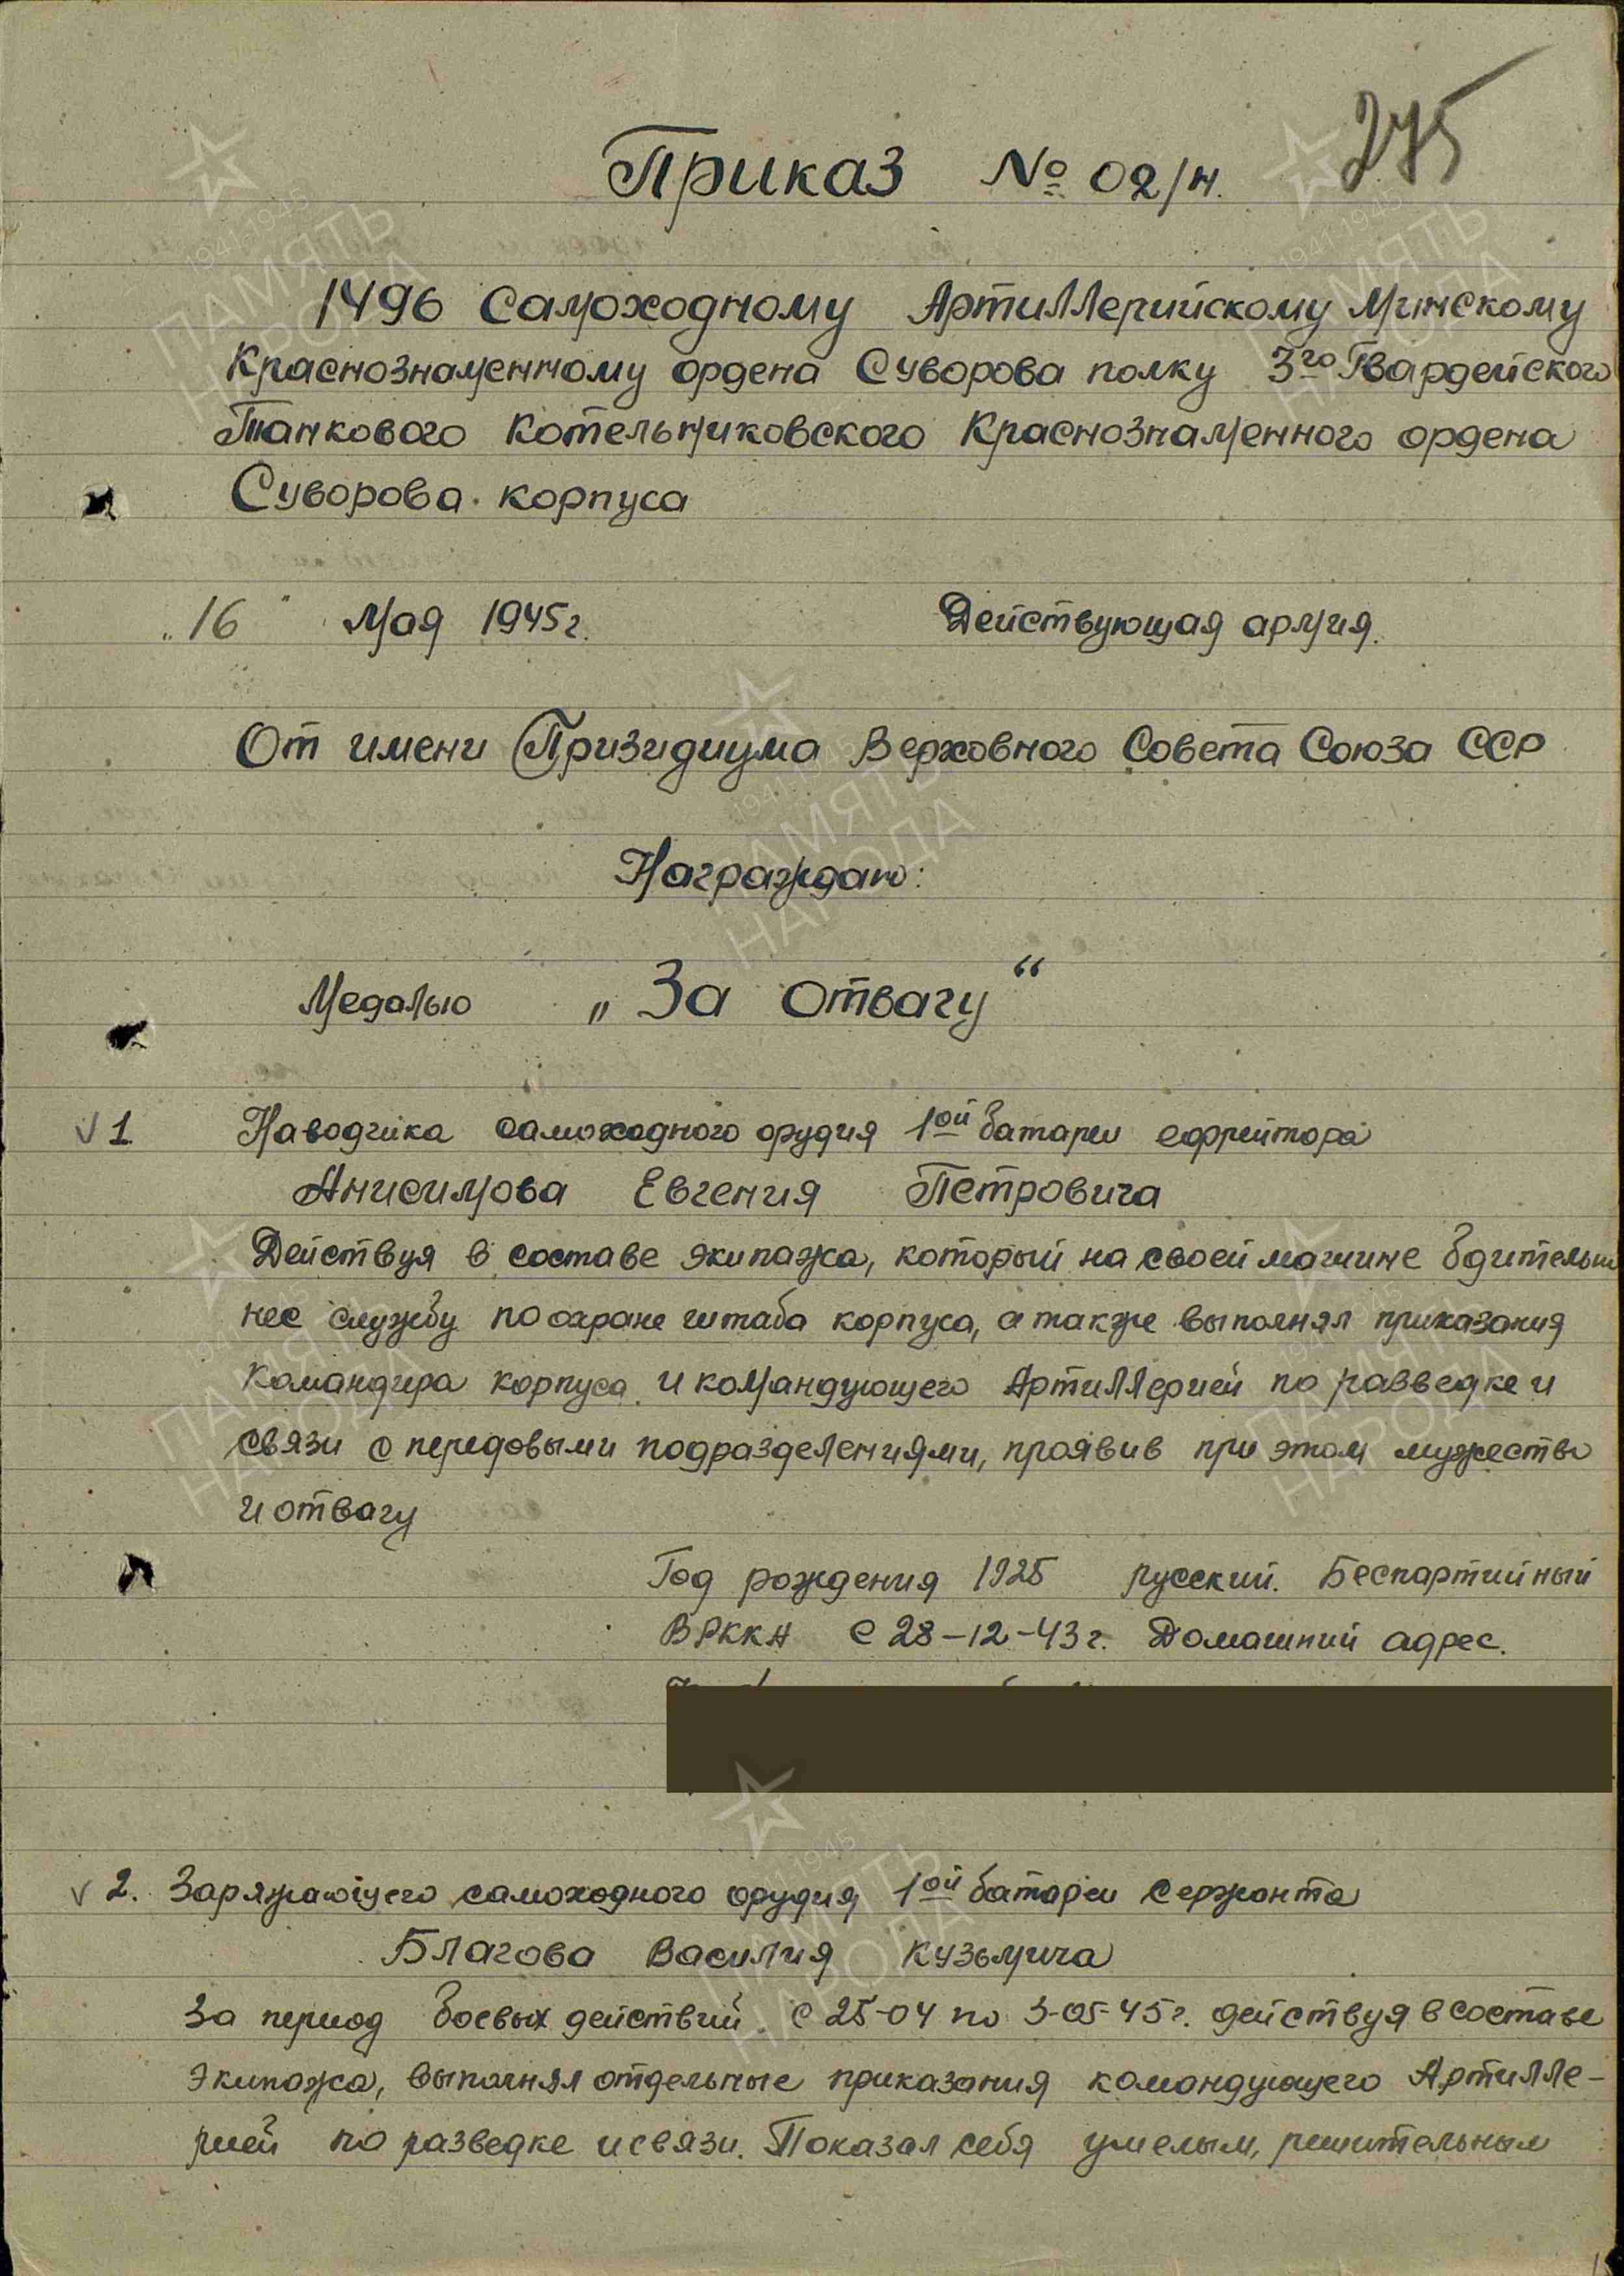 275
Приказ № 02/н.
1496 Самоходному Артиллерийскому Минскому
Краснознаменному ордена Суворова полку 3го Гвардейского
Танкового Котельниковского Краснознаменного ордена
Суворова корпуса
„16" Мая 1945г. Действующая армия.
От имени Призидиума Верховного Совета Союза ССР
Награждаю:
Медалью „За отвагу“
1 Наводчика самоходного орудия 1ой батареи ефрейтора
Анисимова Евгения Петровича
Действуя в составе экипажа, который на своей машине бдительно
нес службу по охране штаба корпуса, а также выполнял приказания
командира корпуса и командующего Артиллерией по разведке и
связи с передовыми подразделениями, проявив при этом мужество
и отвагу
Год рождения 1925 русский. Беспартийный
В РККА с 28-12-43г. Домашний адрес.
2. Заряжающего самоходного орудия 1ой батареи сержанта
Благова Василия Кузьмича
За период боевых действий с 25-04 по 3-05-45г. действуя в составе
экипажа, выполнял отдельные приказания командующего Артилле-
рией по разведке и связи. Показал себя умелым, решительным
1941-1945
ПАМЯТЬ
НАРОДА